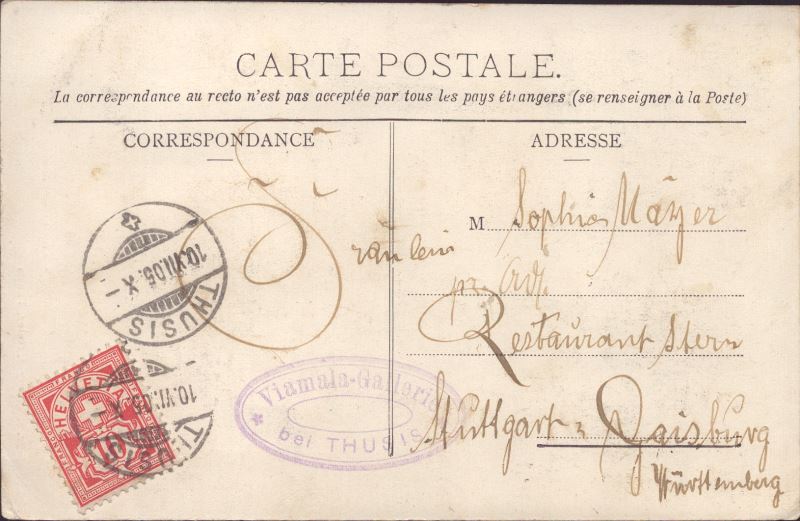 CARTE POSTALE.
La correspondance au recto n'est pas acceptée par tous les pays étrangers (se renseigner à la Poste)
CORRESPONDANCE
ADRESSE
Fräulein
M Sophie Mayer
pr. Adr.
Restaurant Stern
Stuttgart - Gaisburg
Württemberg
10.VII.05. X-
THUSIS
Viamala-Gallerie
* bei THUSIS
HELVETIA
10
FRANCO
10.VII.05. X-
THUSIS